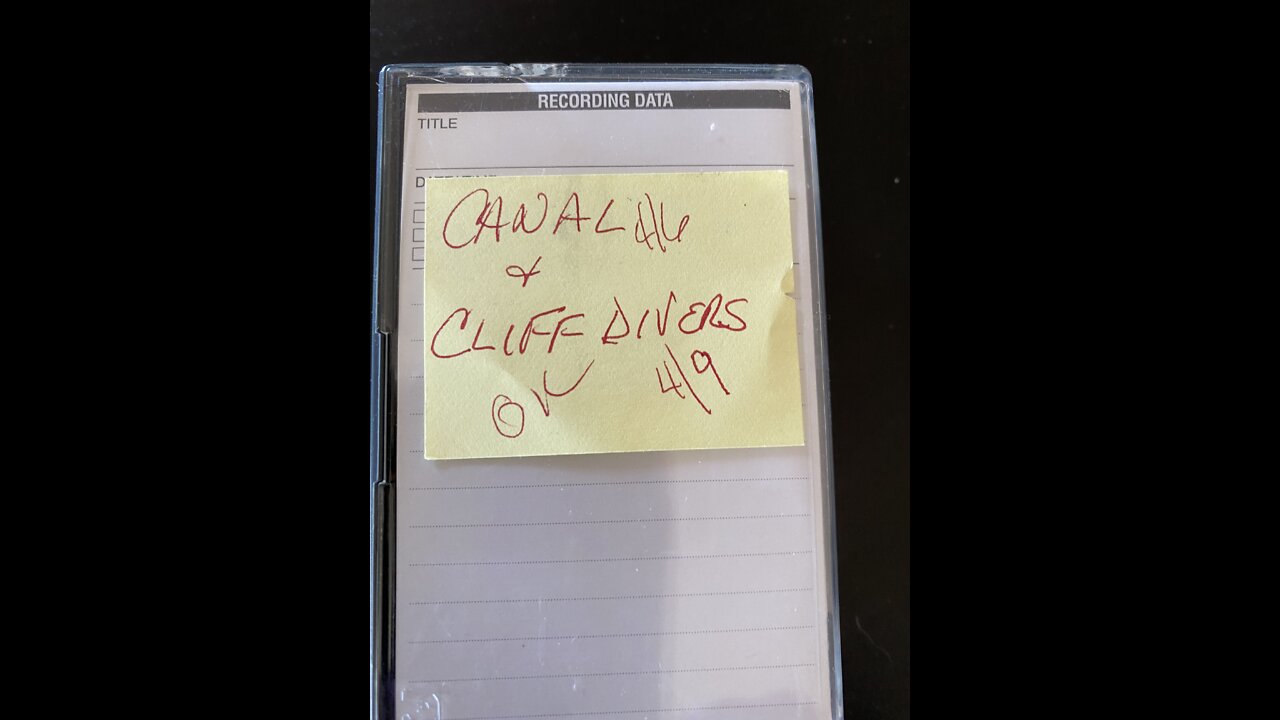 RECORDING DATA
TITLE
CANAL 4/6
&
CLIFF DIVERS
OK 4/9